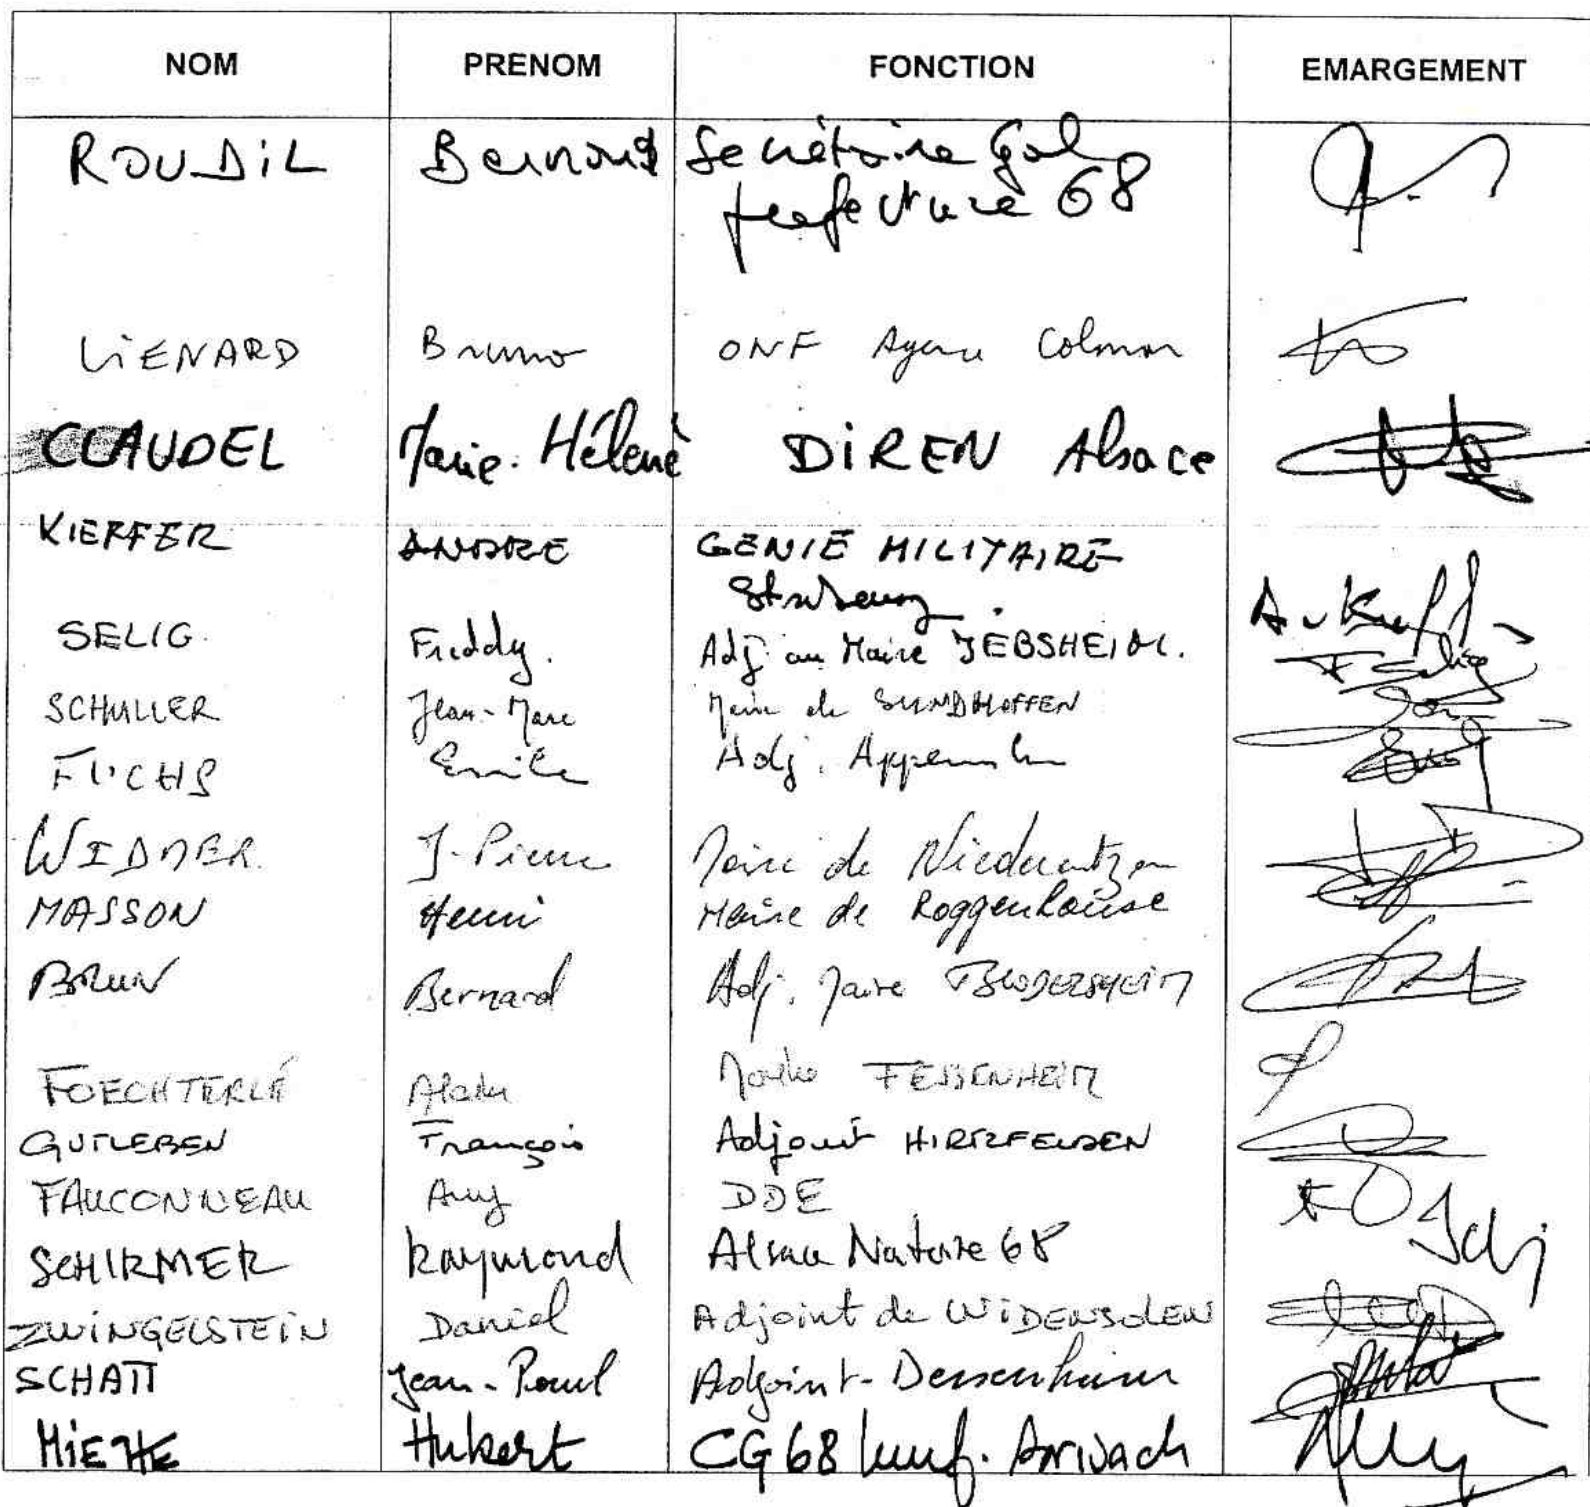 NOM PRENOM FONCTION EMARGEMENT
ROUDIL Bernard Secrétaire Gal
prefecture 68
LiENARD Bruno ONF Agence Colmar
CLAUDEL Marie-Hélène DiREN Alsace
KIEFFER ANDRE GENIE MILITAIRE
Strasbourg
SELIG. Freddy. Adj au Maire JEBSHEIM.
SCHULLER Jean-Marc Maire de SUNDHOFFEN
FUCHS Emile Adj. Appenwihr
WIDMER. J-Pierre Maire de Niederentzen
MASSON Henri Maire de Roggenhouse
BRUN Bernard Adj. Maire BLODELSHEIM
FOECHTERLÉ Alain Maire FESSENHEIM
GUTLEBEN François Adjoint HIRTZFELDEN
FAUCONNEAU DDE
SCHIRMER Raymond Alsace Nature 68
ZWiNGELSTEiN Daniel Adjoint de WiDENSOLEN
SCHATT Jean-Paul Adjoint-Dessenheim
MiETTE Hubert CG68